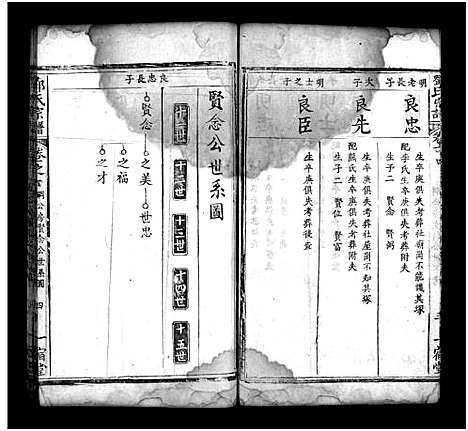 明老長子
良忠
生卒庚俱失考葬社廟崗不知其塚
配李氏生卒庚俱失考葬附夫
生子二 賢念 賢弼
次子
良先
生卒庚俱失考葬社屋崗不知其塚
配熊氏生卒庚俱失考葬附夫
生子二 賢位 賢富
明士之子
良臣
生卒庚俱失考葬後查
賢念公世系圖
十二世
十三世
十四世
十五世
良忠長子
賢念
之美
世忠
之福
之才
賢念公世系圖
四